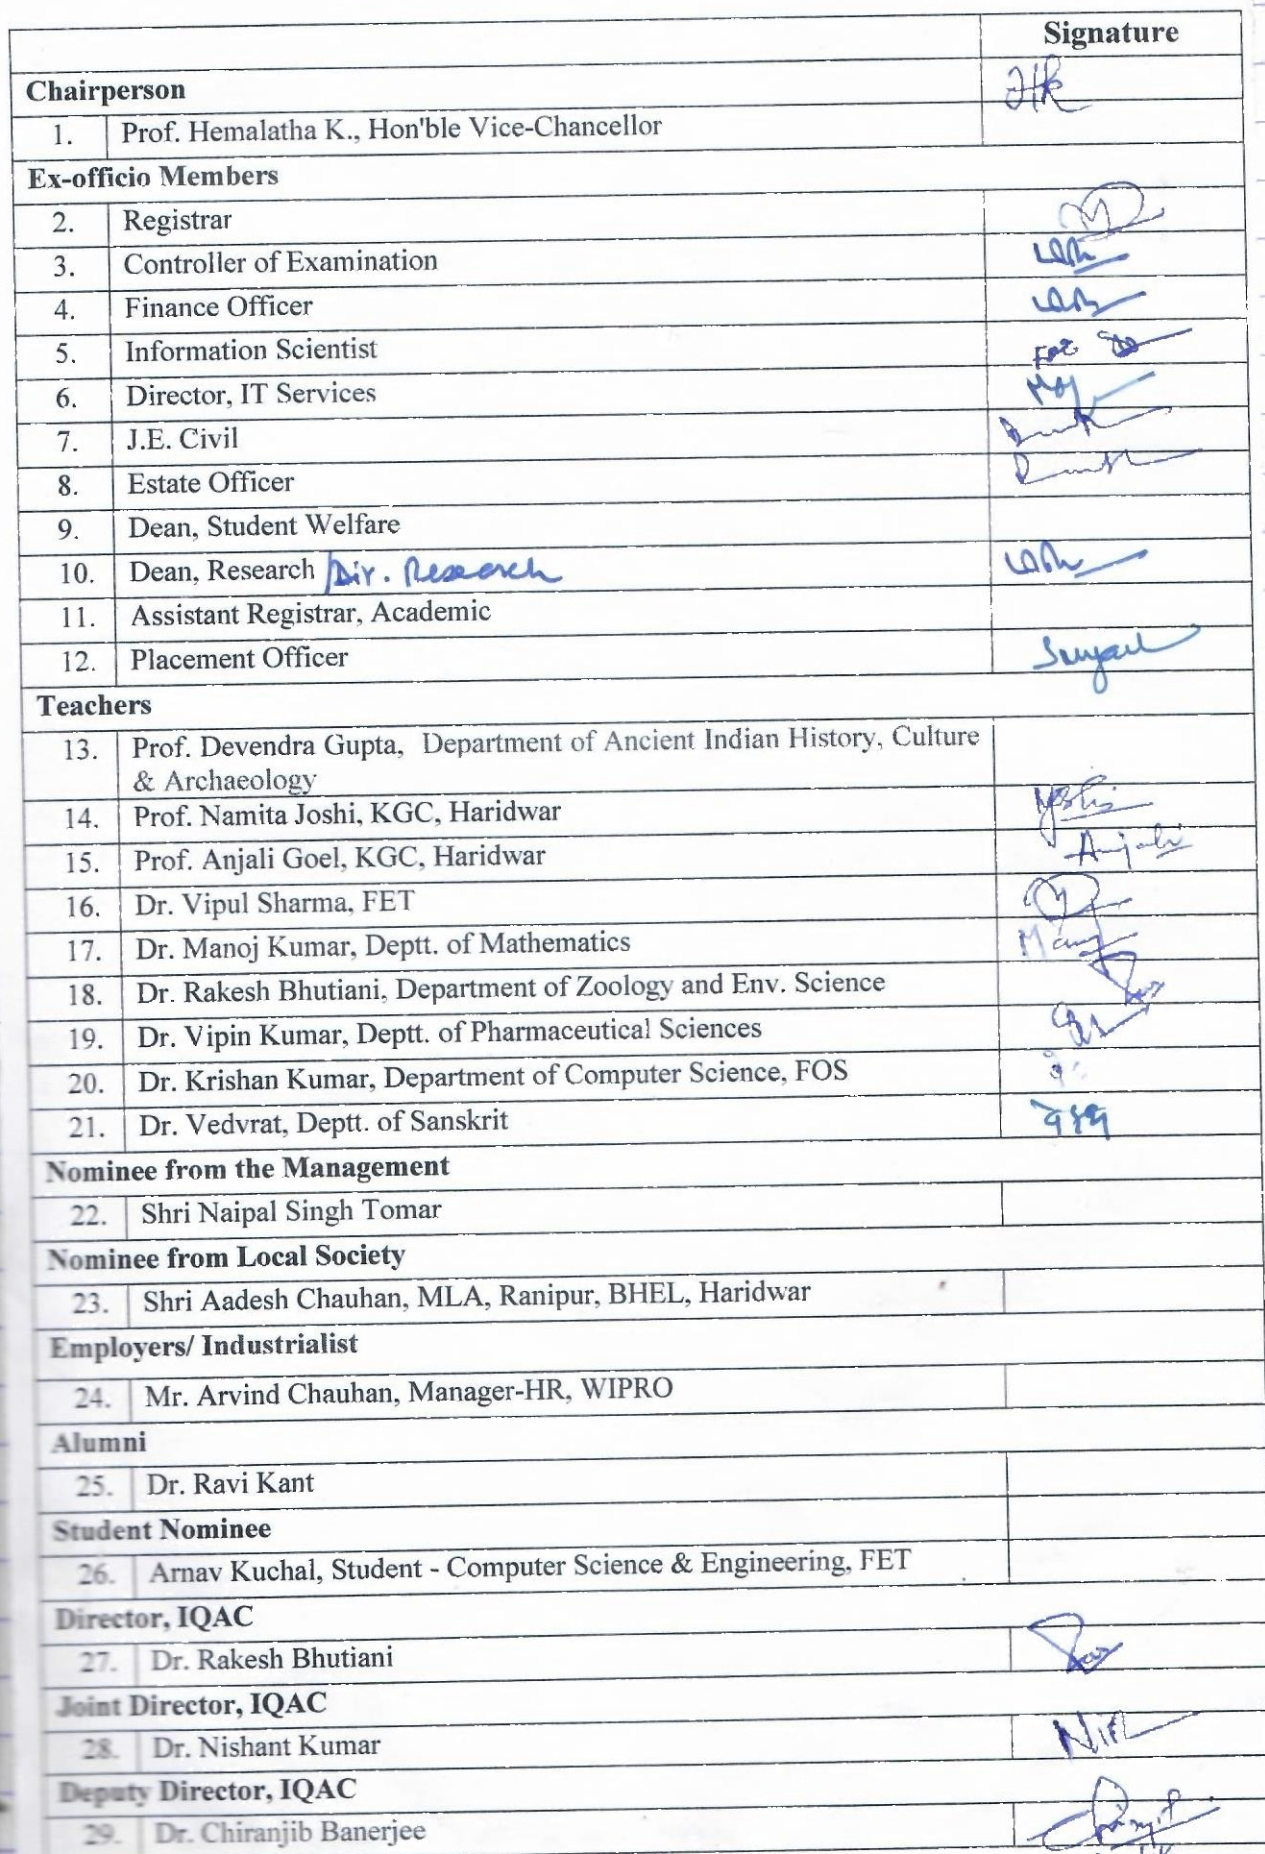 Signature
Chairperson
1. Prof. Hemalatha K., Hon'ble Vice-Chancellor
Ex-officio Members
2. Registrar
3. Controller of Examination
4. Finance Officer
5. Information Scientist
6. Director, IT Services
7. J.E. Civil
8. Estate Officer
9. Dean, Student Welfare
10. Dean, Research /Dir. Research
11. Assistant Registrar, Academic
12. Placement Officer
Teachers
13. Prof. Devendra Gupta, Department of Ancient Indian History, Culture
& Archaeology
14. Prof. Namita Joshi, KGC, Haridwar
15. Prof. Anjali Goel, KGC, Haridwar Anjali
16. Dr. Vipul Sharma, FET
17. Dr. Manoj Kumar, Deptt. of Mathematics
18. Dr. Rakesh Bhutiani, Department of Zoology and Env. Science
19. Dr. Vipin Kumar, Deptt. of Pharmaceutical Sciences
20. Dr. Krishan Kumar, Department of Computer Science, FOS
21. Dr. Vedvrat, Deptt. of Sanskrit
Nominee from the Management
22. Shri Naipal Singh Tomar
Nominee from Local Society
23. Shri Aadesh Chauhan, MLA, Ranipur, BHEL, Haridwar
Employers/ Industrialist
24. Mr. Arvind Chauhan, Manager-HR, WIPRO
Alumni
25. Dr. Ravi Kant
Student Nominee
26. Arnav Kuchal, Student - Computer Science & Engineering, FET
Director, IQAC
27. Dr. Rakesh Bhutiani
Joint Director, IQAC
28. Dr. Nishant Kumar
Deputy Director, IQAC
29. Dr. Chiranjib Banerjee